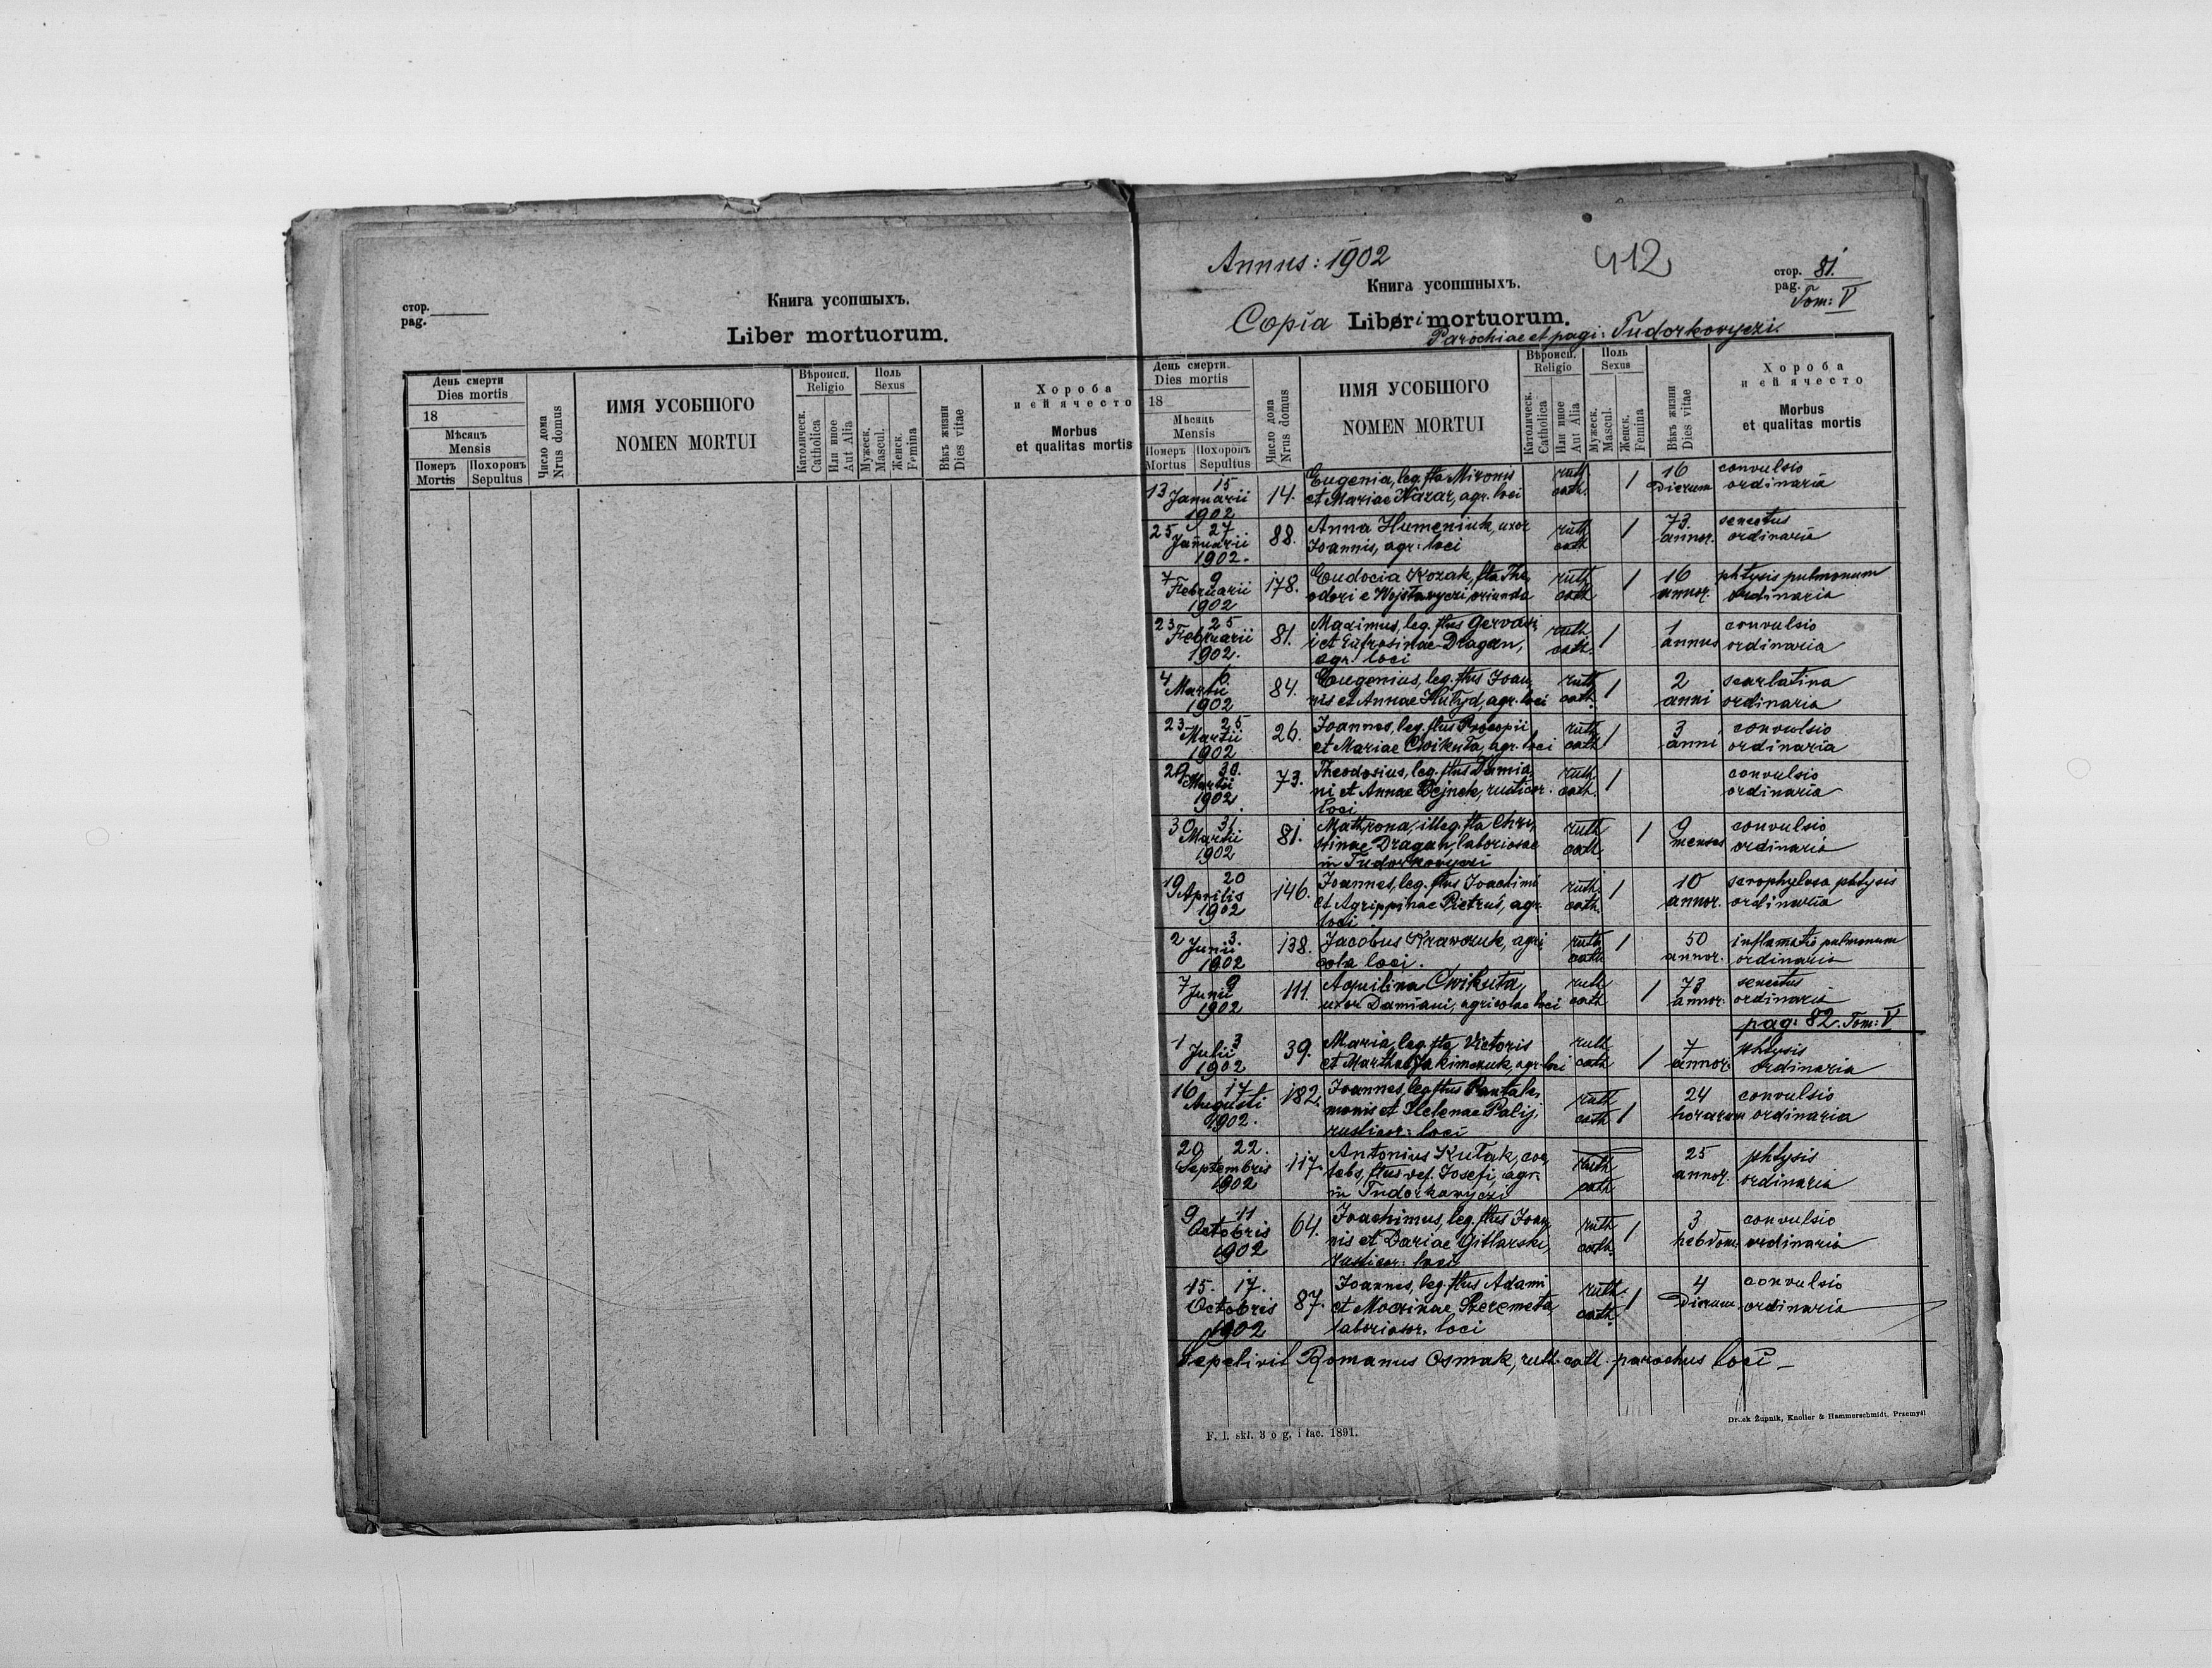 стор.
pag.
Книга усопшыхъ.
Liber mortuorum.
День смерти
Dies mortis
18
Мѣсяцъ
Mensis
Померъ
Mortis
Похоронъ
Sepultus
Число дома
Nrus domus
ИМЯ УСОБШОГО
NOMEN MORTUI
Вѣроисп.
Religio
Католическ.
Catholica
Или иное
Aut Alia
Полъ
Sexus
Мужеск.
Mascul.
Женск.
Femina
Вѣкъ жизни
Dies vitae
Хороба
и ей ячесто
Morbus
et qualitas mortis
Annus: 1902
412
стор. 81.
pag.
Tom: V
Книга усопшныхъ.
Copia Liberi mortuorum.
Parochiae et pagi: Tudorkovyczi
День смерти
Dies mortis
18
Мѣсяцъ
Mensis
Померъ
Mortus
Похоронъ
Sepultus
Число дома
Nrus domus
ИМЯ УСОБШОГО
NOMEN MORTUI
Вѣроисп.
Religio
Католическ.
Catholica
Или иное
Aut Alia
Полъ
Sexus
Мужеск.
Mascul.
Женск.
Femina
Вѣкъ жизни
Dies vitae
Хороба
и ей ячесто
Morbus
et qualitas mortis
13 15 Eugenia, leg. fta Mironis ruth 16 convulsio
Januarii 14. et Mariae Nazar, agr. loci cath. 1 Dierum ordinaria
1902
25 27 Anna Humeniuk, uxor ruth 1 73. senectus
Januarii 88. Joannis, agr. loci cath annor. ordinaria
1902.
7 9 Eudocia Kozak, fta The, ruth 1 16 phtysis pulmonum
Februarii 178. odori e Wojsławyczi oriunda cath annor. ordinaria
1902
23 25 Maximus, leg. ftus Gervasi ruth 1 convulsio
Februarii 81. i et Eufrosinae Dragan, cath. 1 annus ordinaria
1902. agr. loci
4 6. Eugenius, leg. ftus Joan, ruth 2 scarlatina
Martii 84. nis et Annae Hułyd, agr. loci cath. 1 anni ordinaria
1902
23 25 Joannes, leg. ftus Procopii ruth 3 convulsio
Martii 26. et Mariae Cwikuła, agr. loci cath 1 anni ordinaria
1902
29 30. Theodosius, leg. ftus Damia, ruth convulsio
Martii 73. ni et Annae Bejnek, rusticor. cath. 1 ordinaria
1902. loci
30 31 Mathrona, illeg. fta Chri, ruth 1 9 convulsio
Martii 81. stinae Dragan, laboriosae cath. menses ordinaria
1902 in Tudorkovyczi
19 20 Joannes, leg. ftus Joachimi ruth. 1 10 scrophulosa phtysis
Aprilis 146. et Agrippinae Pietruś, agr. cath. annor. ordinaria
1902 loci
2 3. Jacobus Krawczuk, agri, ruth 1 50 inflamatio pulmonum
Junii 138. cola loci. cath annor. ordinaria
1902
7 9 Aquilina Cwikuła, ruth 73 senectus
Junii 111. uxor Damiani, agricolae loci cath 1 annor. ordinaria
1902
pag: 82. Tom: V
1 3 Maria, leg. fta Victoris ruth 7 phtysis
Julii 39. et Marthae Jakimczuk, agr. loci cath 1 annor. ordinaria
1902
16 17 Joannes, leg. ftus Pantale, ruth 24 convulsio
Augusti 182. monis et Helenae Palij cath 1 horarum ordinaria
1902. rusticor: loci
20 22. Antonius Kułak, coe, ruth 25 phtysis
Septembris 117. lebs, ftus def. Josefi, agr. cath annor. ordinaria
1902 in Tudorkowyczi
9 11 Joachimus, leg. ftus Joan, ruth 3 convulsio
Octobris 64. nis et Dariae Gitlarski, cath. 1 hebdom. ordinaria
1902 rusticor: loci
15. 17. Joannes, leg. ftus Adami ruth. 4 convulsio
Octobris 87. et Mocrinae Szeremeta, cath. 1 Dierum ordinaria
1902 laboriosor. loci
Sepelivit Romanus Osmak, ruth. cath. parochus loci
F. I. skł. 3 o g. i łac. 1891.
Druk Żupnik, Knoller & Hammerschmidt, Przemyśl